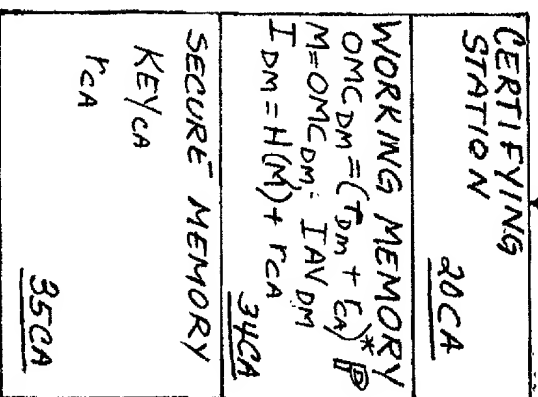 CERTIFYING
STATION
20CA
WORKING MEMORY
OMC DM = (r DM + r CA)* P
M = OMC DM; IAV DM
I DM = H(M) + r CA
34CA
SECURE MEMORY
KEY CA
r CA
35CA